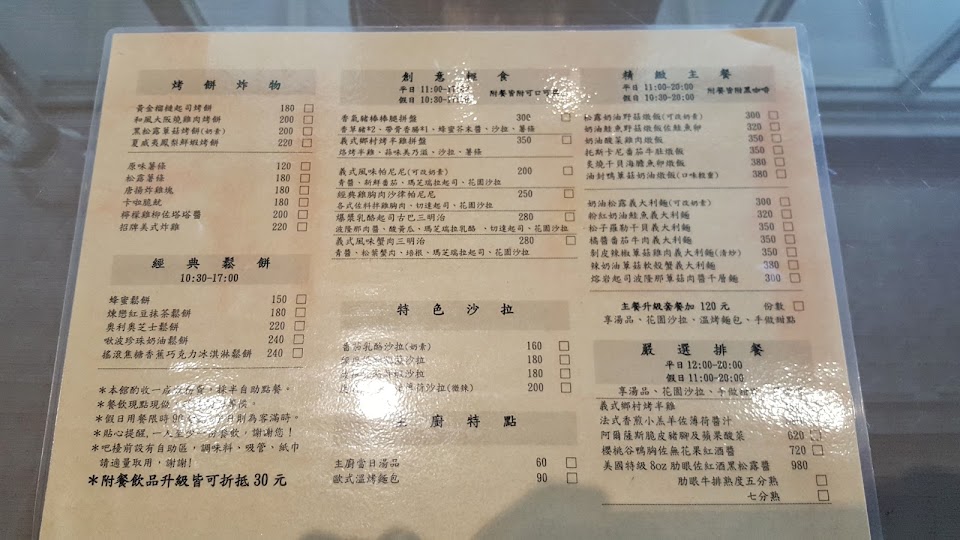 烤餅炸物
黃金榴槤起司烤餅 180 □
和風大阪燒雞肉烤餅 200 □
黑松露蕈菇烤餅(奶素) 200 □
夏威夷鳳梨鮮蝦烤餅 220 □
原味薯條 120 □
松露薯條 180 □
唐揚炸雞塊 180 □
卡啦脆魷 180 □
檸檬雞柳佐塔塔醬 220 □
招牌美式炸雞 220 □
經典鬆餅
10:30-17:00
蜂蜜鬆餅 150 □
煉戀紅豆抹茶鬆餅 180 □
奧利奧芝士鬆餅 220 □
啾波珍珠奶油鬆餅 240 □
搖滾焦糖香蕉巧克力冰淇淋鬆餅 240 □
*本館酌收一成 採半自助點餐。
*餐飲現點現做
*假日用餐限時90 日期為客滿時。
*貼心提醒,一人至少 餐飲，謝謝您！
*吧檯前設有自助區，調味料、吸管、紙巾
請適量取用，謝謝!
*附餐飲品升級皆可折抵 30 元
創意輕食
平日 11:00-17:00
假日 10:30-17: 附餐皆附可口可
香氣豬棒棒腿拼盤 300 □
香草豬*2、帶骨香腸*1、蜂蜜芥末醬、沙拉、薯條
義式鄉村烤半雞拼盤 350 □
烙烤半雞、蒜味美乃滋、沙拉、薯條
義式風味帕尼尼(可改奶素) 200 □
青醬、新鮮番茄、瑪芝瑞拉起司、花園沙拉
經典雞胸肉沙律帕尼尼 250 □
各式佐料拌雞胸肉、切達起司、花園沙拉
爆漿乳酪起司古巴三明治 280 □
波隆那肉醬、酸黃瓜、瑪芝瑞拉乳酪、切達起司、花園沙拉
義式風味蟹肉三明治 280 □
青醬、松葉蟹肉、培根、瑪芝瑞拉起司、花園沙拉
特色沙拉
乳酪沙拉(奶素) 160 □
沙拉 180 □
沙拉 180 □
薄荷沙拉(微辣) 200 □
主廚特點
主廚當日湯品 60 □
歐式溫烤麵包 90 □
精緻主餐
平日 11:00-20:00
假日 10:30-20:00 附餐皆附黑咖啡
松露奶油野菇燉飯(可改奶素) 300 □
奶油鮭魚野菇燉飯佐鮭魚卵 320 □
奶油酸菜雞肉燉飯 320 □
托斯卡尼番茄牛肚燉飯 350 □
炙燒干貝海膽魚卵燉飯 380 □
油封鴨蕈菇奶油燉飯(口味較重) 380 □
奶油松露義大利麵(可改奶素) 300 □
粉紅奶油鮭魚義大利麵 320 □
松子羅勒干貝義大利麵 340 □
橘醬番茄牛肉義大利麵 350 □
剝皮辣椒蕈菇雞肉義大利麵(清炒) 350 □
辣奶油蕈菇軟殼蟹義大利麵 380 □
熔岩起司波隆那蕈菇肉醬千層麵 380 □
主餐升級套餐加 120 元 份數 □
享湯品、花園沙拉、溫烤麵包、手做甜點
嚴選排餐
平日 12:00-20:00
假日 11:00-20:00
享湯品、花園沙拉、手做甜
義式鄉村烤半雞
法式香煎小羔羊佐薄荷醬汁
阿爾薩斯脆皮豬腳及蘋果酸菜 620 □
櫻桃谷鴨胸佐無花果紅酒醬 720 □
美國特級 8oz 肋眼佐紅酒黑松露醬 980
肋眼牛排熟度五分熟 □
七分熟 □